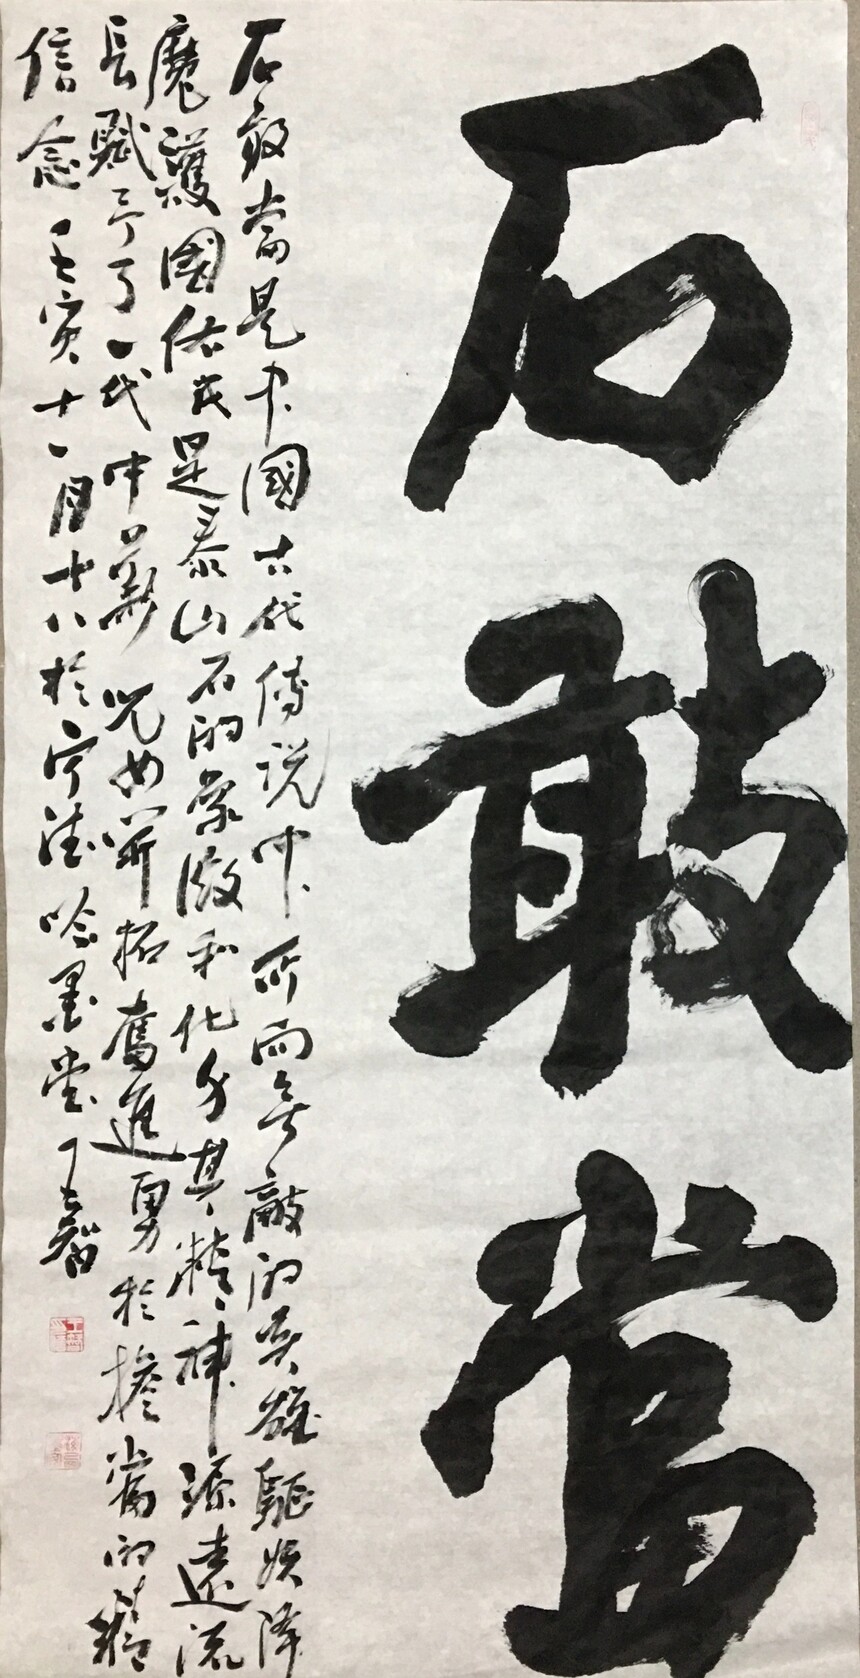 石敢當
石敢當是中國古代傳說中所向無敵的英雄驅妖降
魔護國佑民是泰山石的象徵和化身其精神源遠流
長賦予了一代中華兒女開拓奮進勇於擔當的精
信念壬寅十一月十八於寧德吟墨堂王智